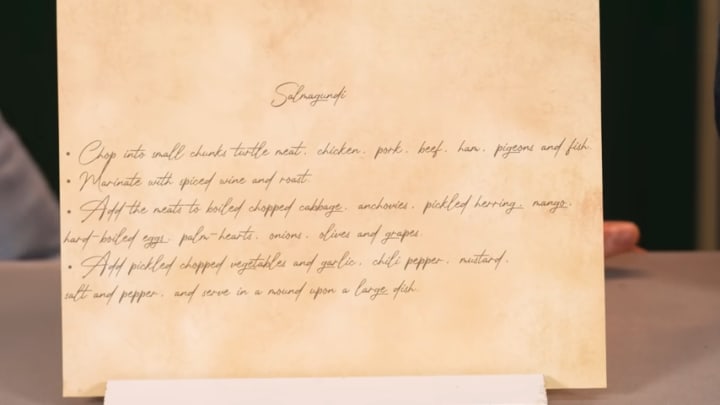 Salmagundi
• Chop into small chunks turtle meat, chicken, pork, beef, ham, pigeons and fish.
• Marinate with spiced wine and roast.
• Add the meats to boiled chopped cabbage, anchovies, pickled herring, mango,
hard-boiled eggs, palm-hearts, onions, olives and grapes.
• Add pickled chopped vegetables and garlic, chili pepper, mustard,
salt and pepper, and serve in a mound upon a large dish.